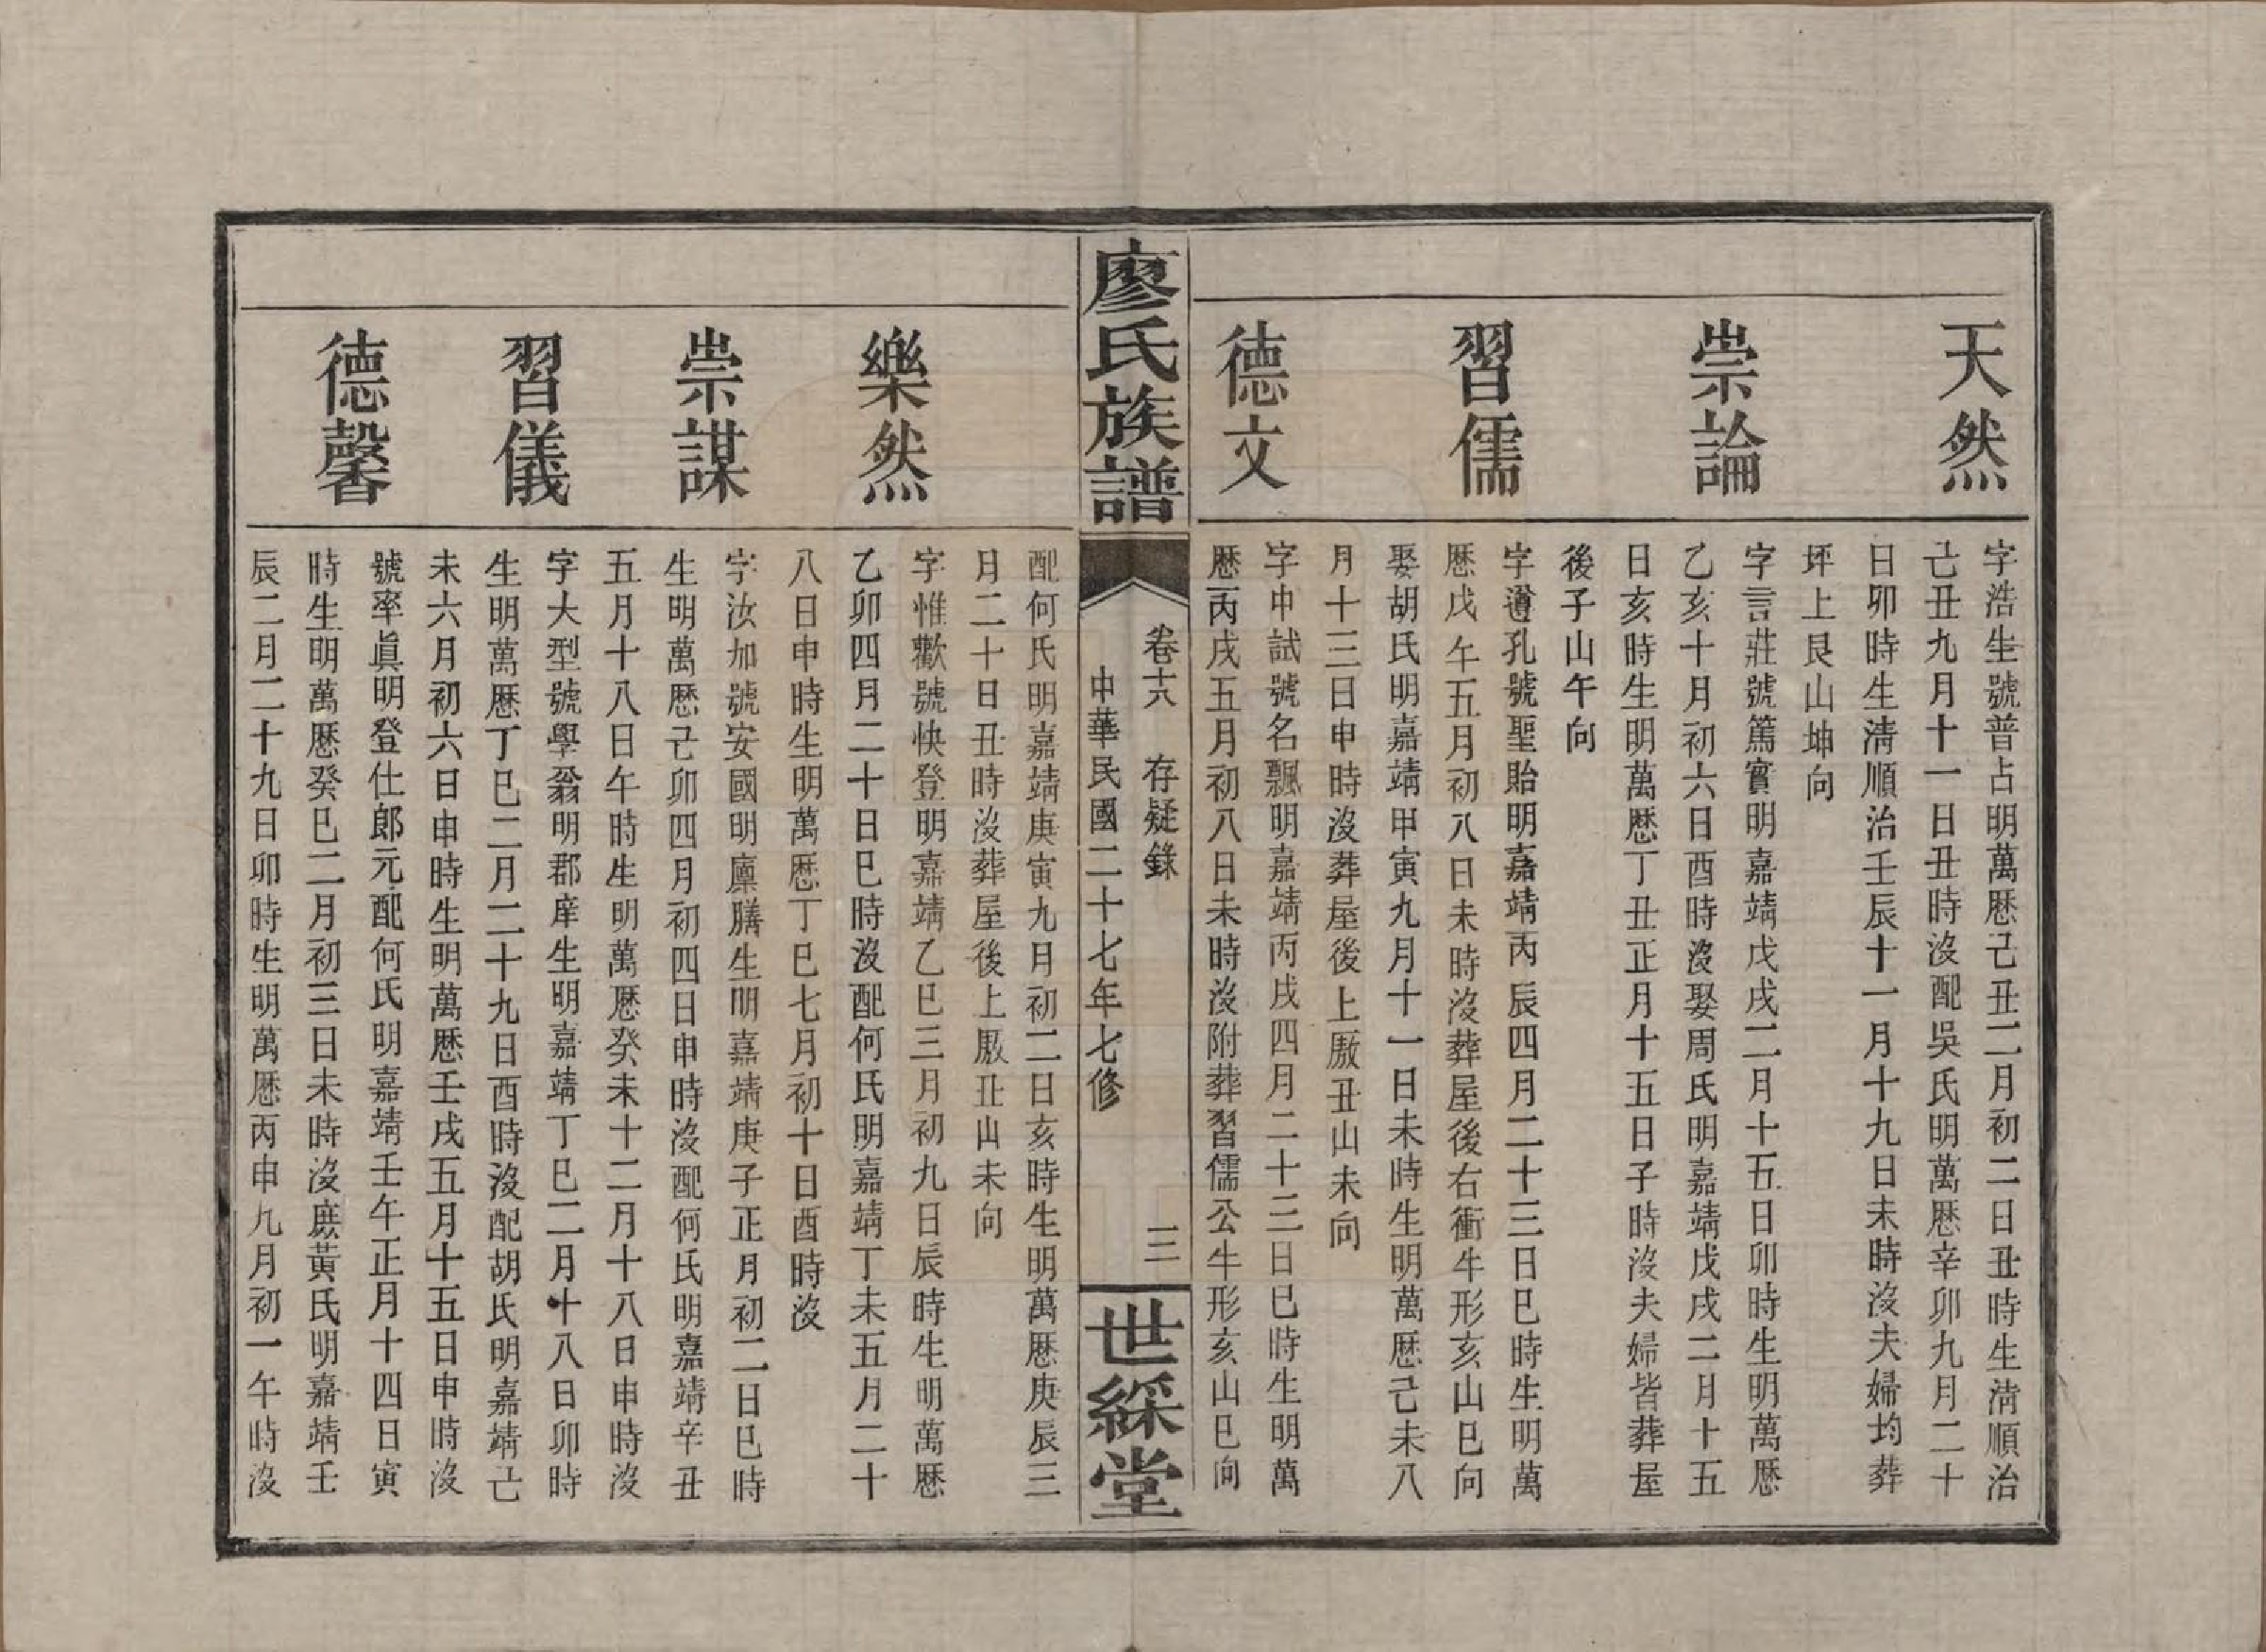 天然
字浩生號普占明萬厯己丑二月初二日丑時生淸順治
己丑九月十一日丑時沒配吳氏明萬厯辛卯九月二十
日卯時生淸順治壬辰十一月十九日未時沒夫婦均葬
坪上艮山坤向
崇論
字言莊號篤實明嘉靖戊戌二月十五日卯時生明萬厯
乙亥十月初六日酉時沒娶周氏明嘉靖戊戌二月十五
日亥時生明萬厯丁丑正月十五日子時沒夫婦皆葬屋
後子山午向
習儒
字遵孔號聖貽明嘉靖丙辰四月二十三日巳時生明萬
厯戊午五月初八日未時沒葬屋後右衝牛形亥山巳向
娶胡氏明嘉靖甲寅九月十一日未時生明萬厯己未八
月十三日申時沒葬屋後上厫丑山未向
德文
字申試號名飄明嘉靖丙戌四月二十三日巳時生明萬
厯丙戌五月初八日未時沒附葬習儒公牛形亥山巳向
廖氏族譜
卷十六 存疑錄 三
中華民國二十七年七修
世綵堂
配何氏明嘉靖庚寅九月初二日亥時生明萬厯庚辰三
月二十日丑時沒葬屋後上厫丑山未向
樂然
字惟歡號快登明嘉靖乙巳三月初九日辰時生明萬厯
乙卯四月二十日巳時沒配何氏明嘉靖丁未五月二十
八日申時生明萬厯丁巳七月初十日酉時沒
崇謀
字汝加號安國明廩膳生明嘉靖庚子正月初二日巳時
生明萬厯己卯四月初四日申時沒配何氏明嘉靖辛丑
五月十八日午時生明萬厯癸未十二月十八日申時沒
習儀
字大型號學翁明郡庠生明嘉靖丁巳二月十八日卯時
生明萬厯丁巳二月二十九日酉時沒配胡氏明嘉靖己
未六月初六日申時生明萬厯壬戌五月十五日申時沒
德馨
號率眞明登仕郎元配何氏明嘉靖壬午正月十四日寅
時生明萬厯癸巳二月初三日未時沒庶黃氏明嘉靖壬
辰二月二十九日卯時生明萬厯丙申九月初一午時沒